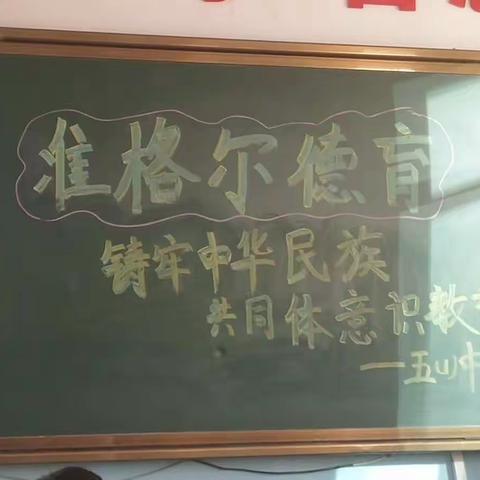 准格尔德育
铸牢中华民族
共同体意识教
一五 中